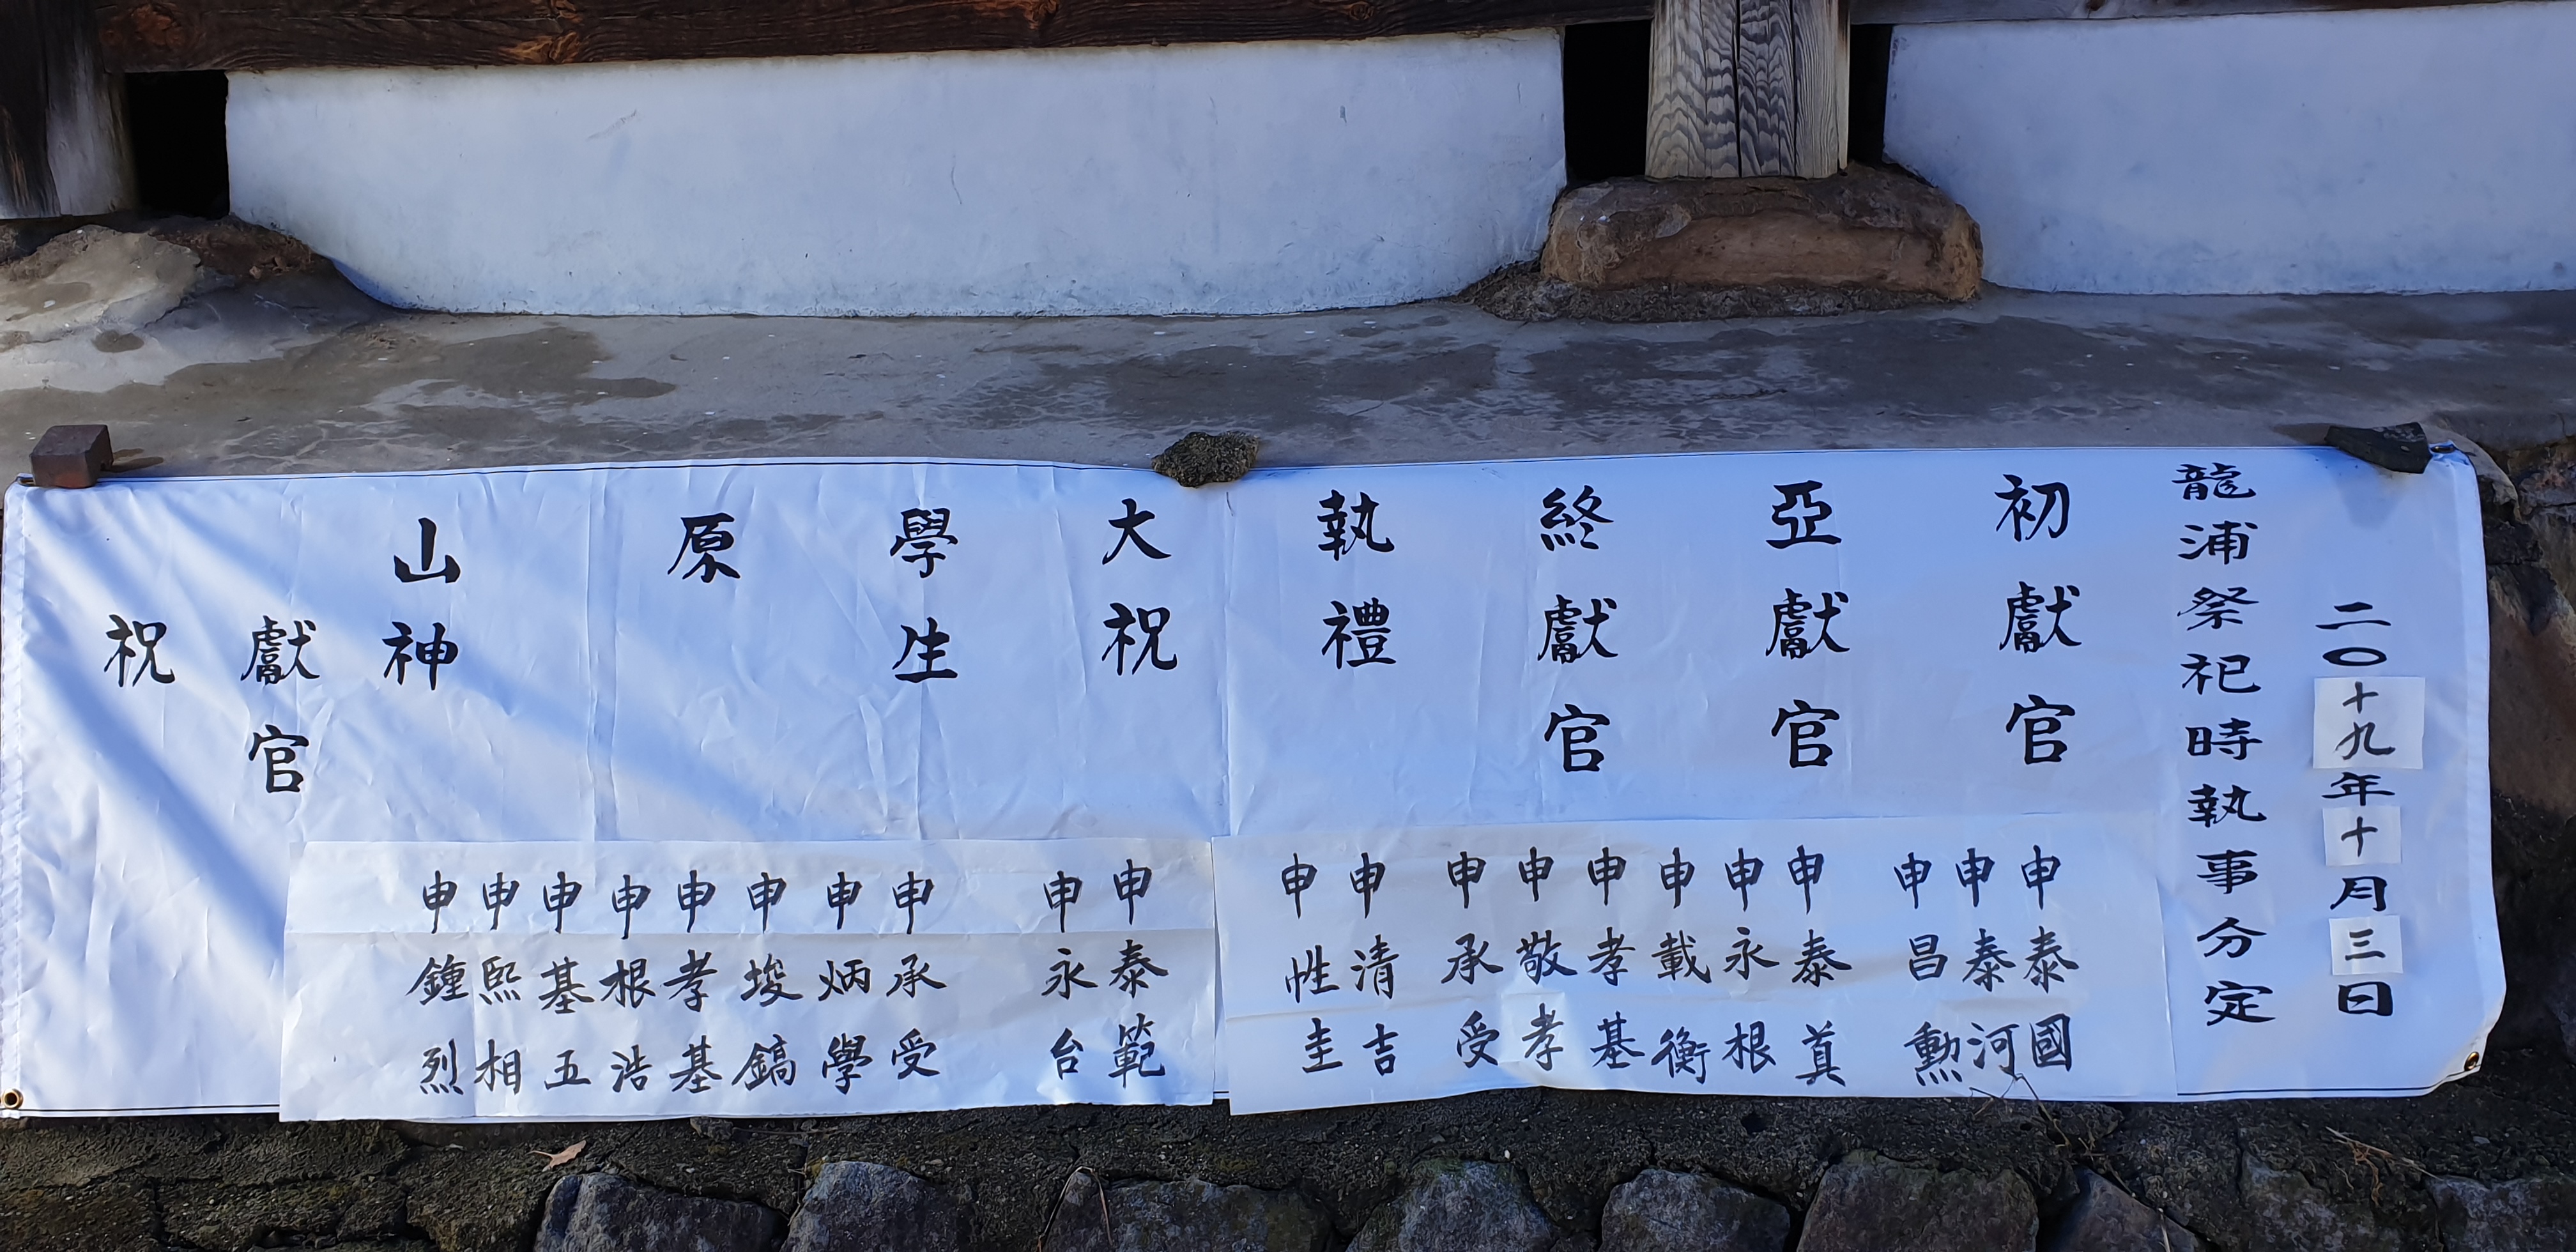 二〇十九年十月三日
龍浦祭祀時執事分定
初獻官
亞獻官
終獻官
執禮
大祝
學生
原
山神
獻官
祝
申泰國
申泰河
申昌勲
申泰真
申永根
申載衡
申孝基
申敬孝
申承受
申清吉
申性圭
申泰範
申永台
申承受
申炳學
申埈鎬
申孝基
申根浩
申基五
申熙相
申鍾烈